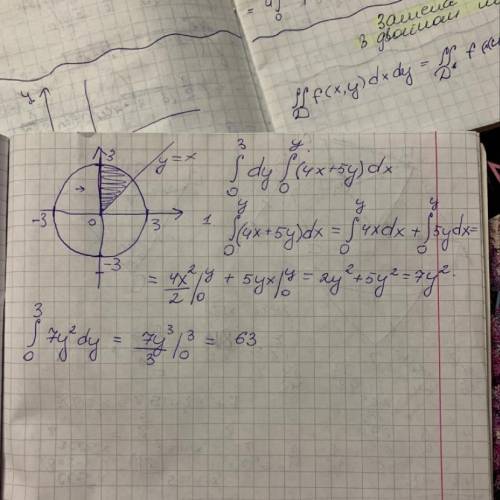 Замена
в двойном
∬ f(x,y) dx dy = ∬ f(
D D*
y
3
y = x
-3 0 3
-3
∫₀³ dy ∫₀ʸ (4x+5y) dx
1 ∫₀ʸ (4x+5y) dx = ∫₀ʸ 4x dx + ∫₀ʸ 5y dx =
= 4x²/2 |₀ʸ + 5yx |₀ʸ = 2y² + 5y² = 7y²
∫₀³ 7y² dy = 7y³/3 |₀³ = 63